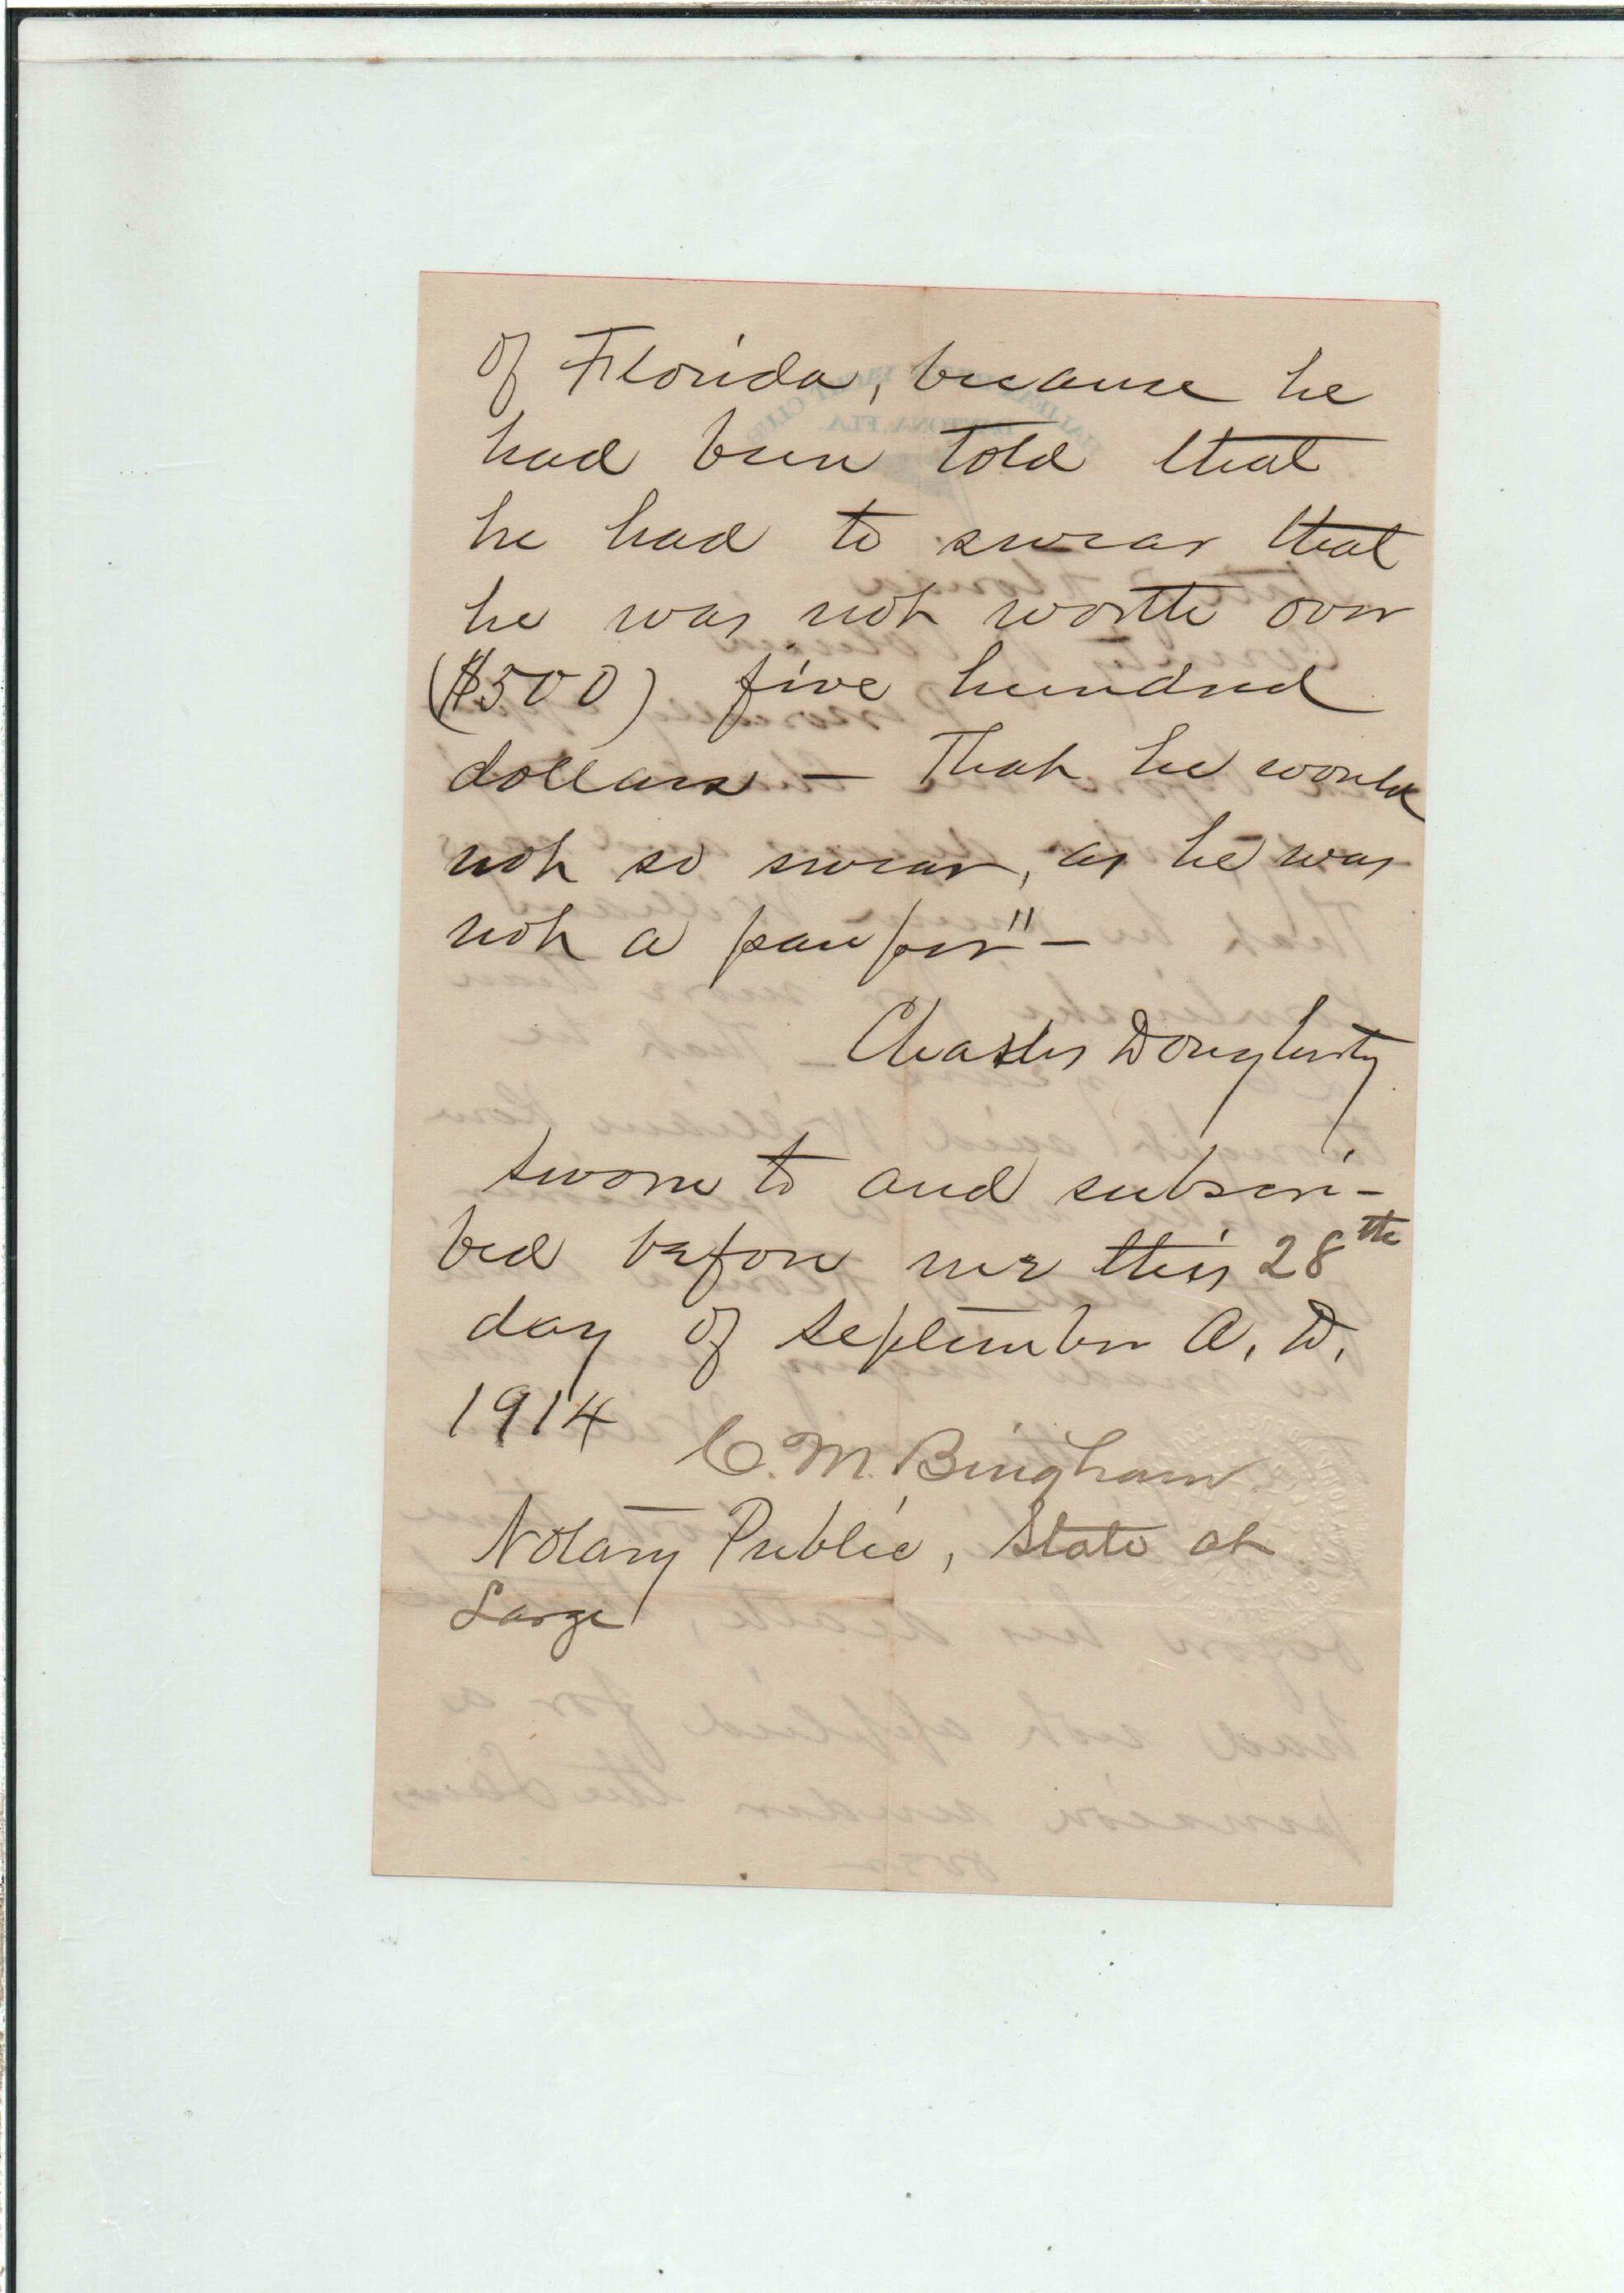 of Florida, because he
had been told that
he had to swear that
he was not worth over
($500) five hundred
dollars — That he would
not so swear, as he was
not a pauper" —
Charles Dougherty
Sworn to and subscri-
bed before me this 28th
day of September A. D.
1914
C. M. Bingham
Notary Public, State at
Large